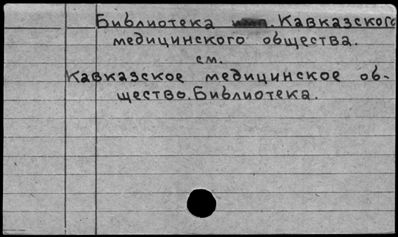 Библиотека имп. Кавказского
медицинского общества.
см.
Кавказское медицинское об-
щество. Библиотека.